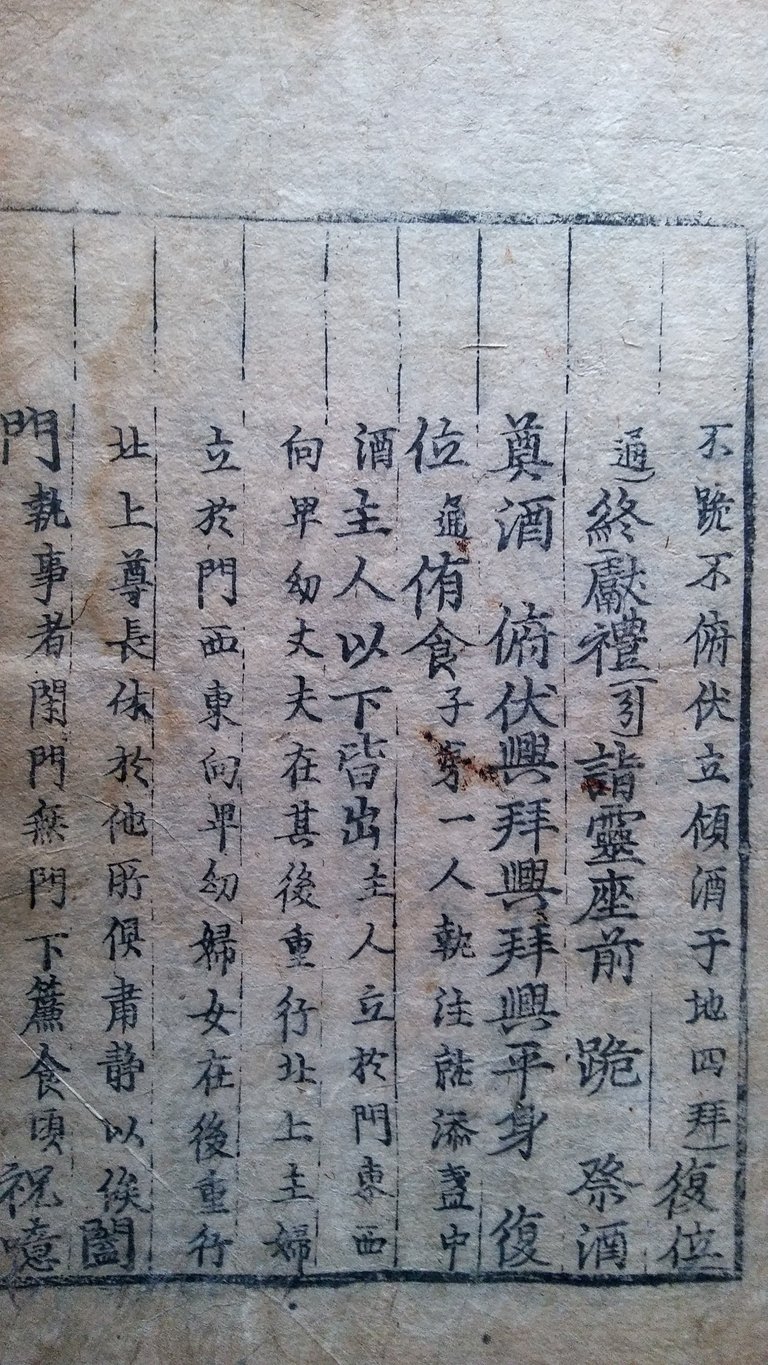 不跪不俯伏立傾酒于地四拜）復位
通）終獻禮（引）詣靈座前　跪　祭酒
奠酒　俯伏興拜興拜興平身　復
位　通　侑食子弟一人執注就添盞中
酒主人以下皆出主人立於門東西
向卑幼丈夫在其後重行北上主婦
立於門西東向卑幼婦女在後重行
北上尊長休於他所俱肅静以俟闔
門執事者閉門無門下簾食頃祝噫